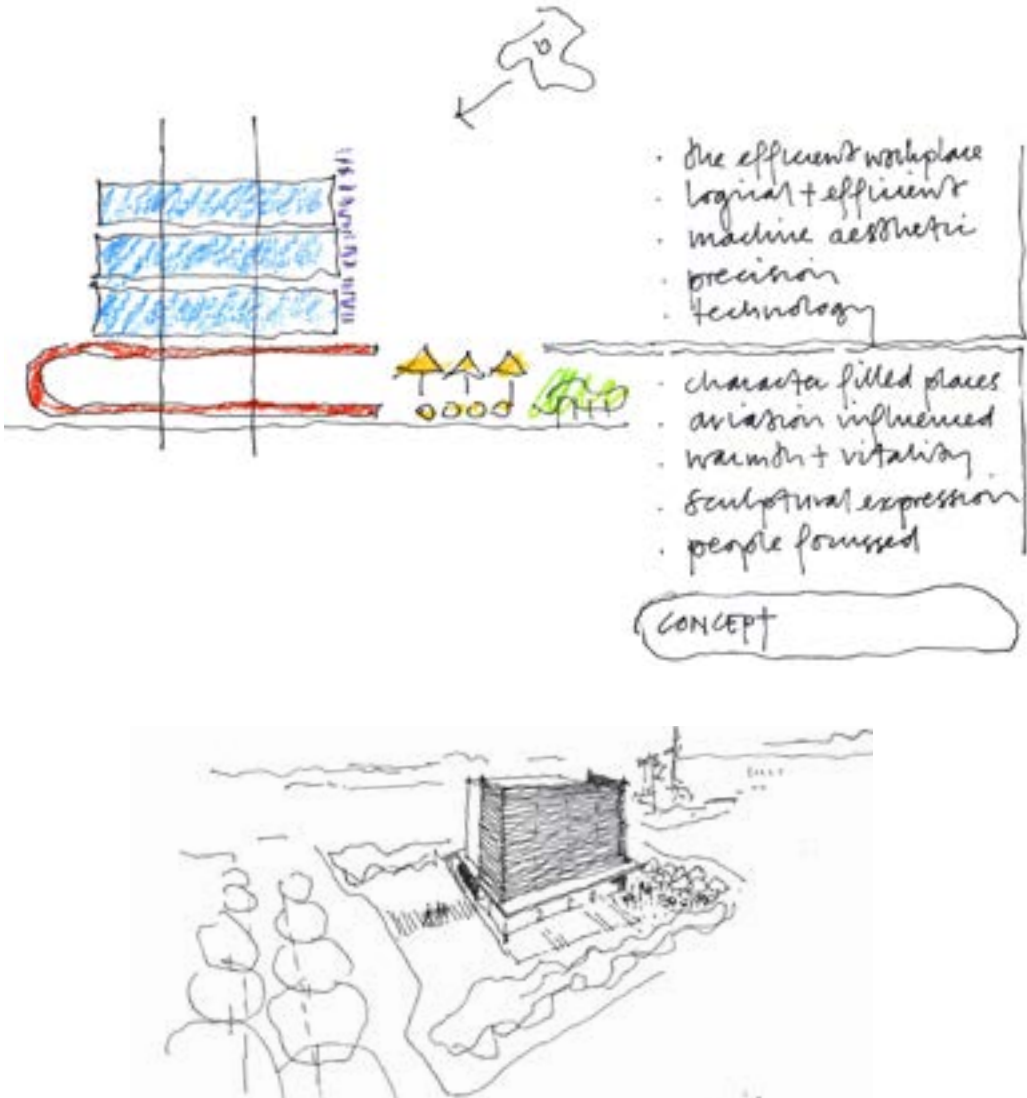 · the efficient workplace
· logical + efficient
· machine aesthetic
· precision
· technology
· character filled places
· aviation influenced
· warmth + vitality
· sculptural expression
· people focussed
CONCEPT